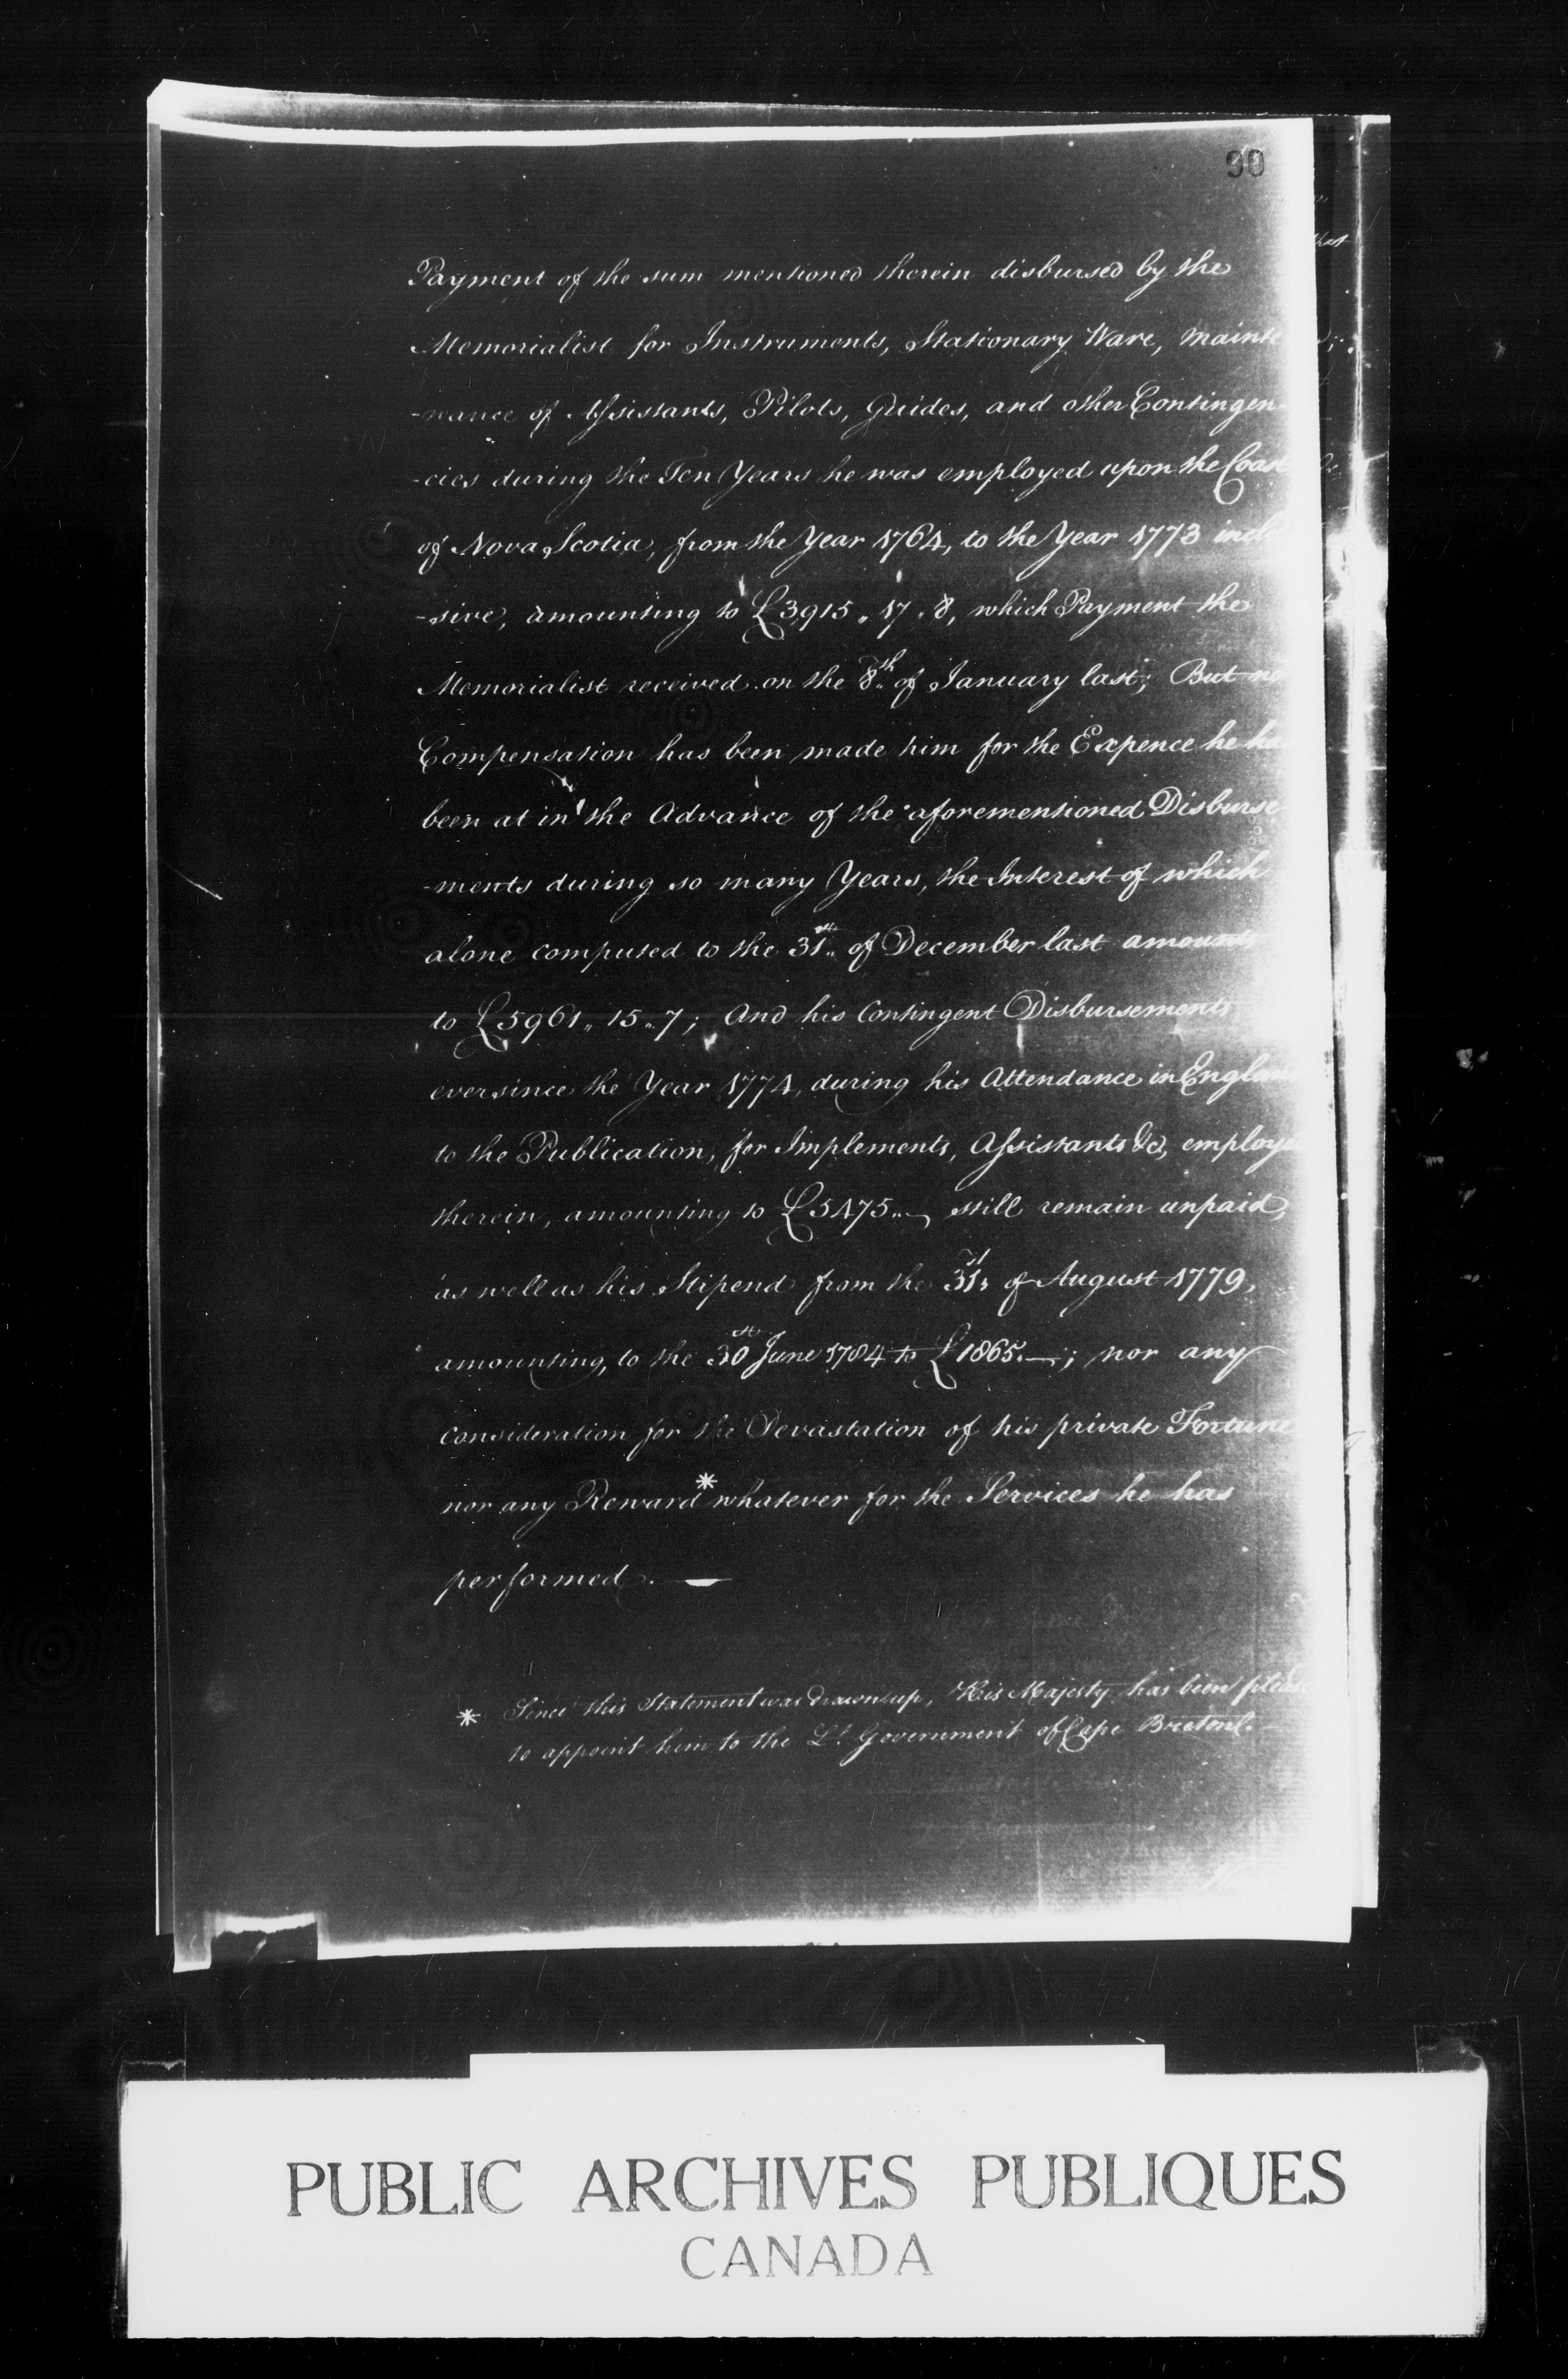 90
Payment of the sum mentioned therein disbursed by the
Memorialist for Instruments, Stationary Ware, mainte
-nance of Assistants, Pilots, Guides, and other Contingen-
-cies during the Ten Years he was employed upon the Coast
of Nova Scotia, from the Year 1764, to the Year 1773 inclu
-sive, amounting to £3915„17„8, which Payment the
Memorialist received on the 8th of January last; But no
Compensation has been made him for the Expence he ha
been at in the Advance of the aforementioned Disburse
-ments during so many Years, the Interest of which
alone computed to the 31st of December last amounts
to £5961„15„7; And his Contingent Disbursements
ever since the Year 1774, during his Attendance in England
to the Publication, for Implements, Assistants &ca, employed
therein, amounting to £5475„— still remain unpaid,
as well as his Stipend from the 31st of August 1779,
amounting, to the 30th June 1784 to £1865.—; nor any
consideration for the Devastation of his private Fortune
nor any Reward * whatever for the Services he has
performed. —
* Since this Statement was drawn up, His Majesty has been pleased
to appoint him to the Lt. Government of Cape Breton. —
PUBLIC ARCHIVES PUBLIQUES
CANADA